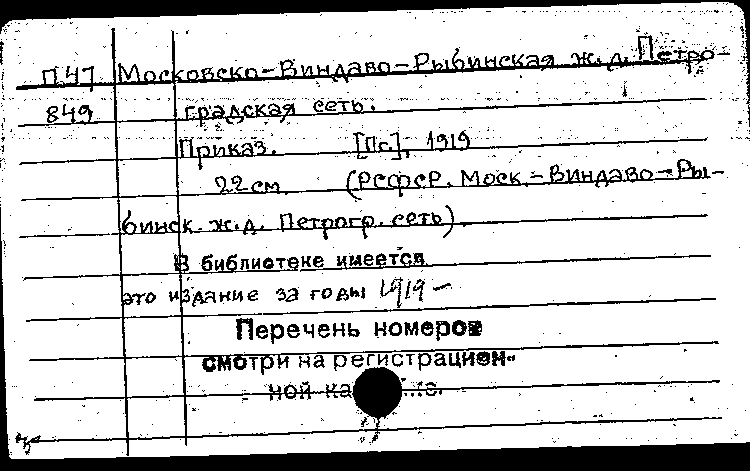 П.47 Московско-Виндаво-Рыбинская ж.д. Петро-
849 градская сеть.
Приказ. [Пс], 1919
22 см. (РСФСР. Моск.-Виндаво-Ры-
бинск. ж.д. Петрогр. сеть).
В библиотеке имеется
это издание за годы 1919 —
Перечень номеров
смотри на регистрацион-
ной